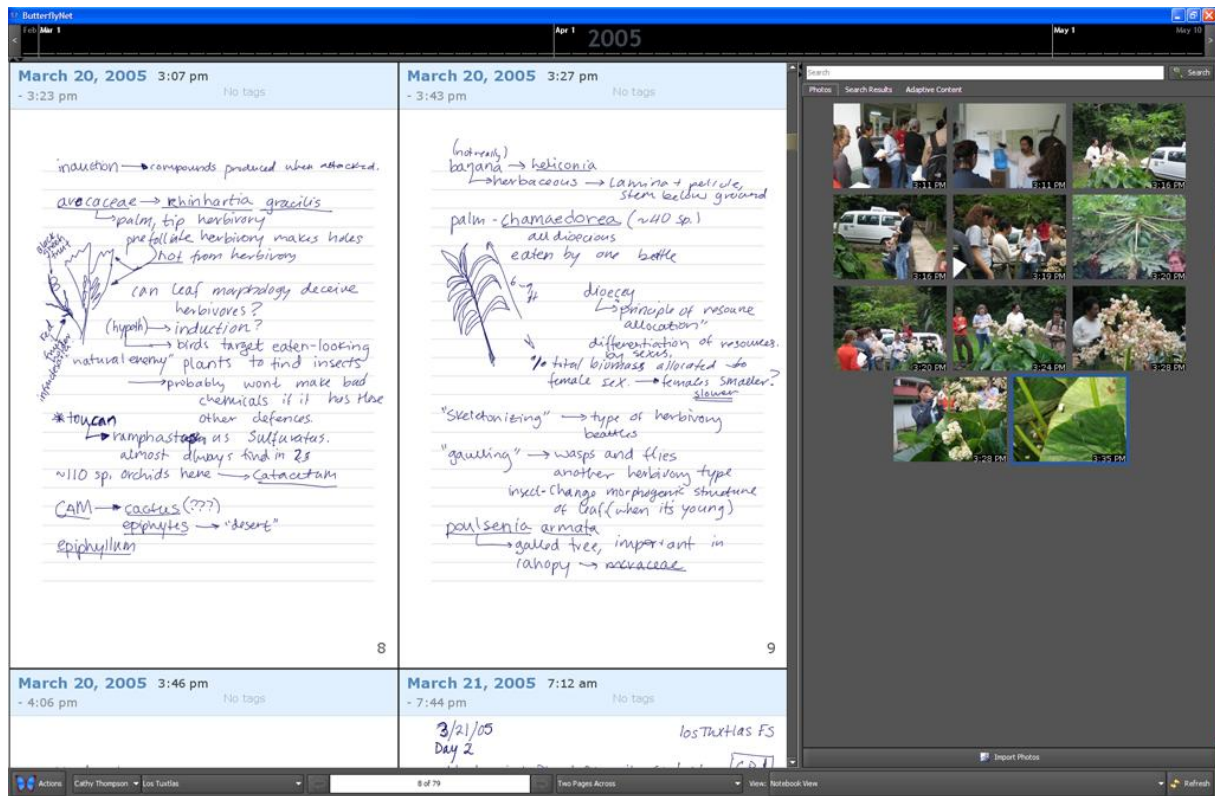 ButterflyNet
Feb Mar 1 Apr 1 2005 May 1 May 10
March 20, 2005 3:07 pm
- 3:23 pm
No tags
induction → compounds produced when attacked.
aracaceae → rhinhartia gracilis
palm, tip herbivory
prefoliate herbivory makes holes
not from herbivory
black
fresh
fruit
can leaf morphology deceive
herbivores?
(hypoth) → induction?
birds target eaten-looking
"natural enemy" plants to find insects
→ probably wont make bad
chemicals if it has these
other defences.
Red
*toucan
ramphastos us Sulfuratus.
almost always find in 2s
~110 sp. orchids here → Catacetum
CAM → cactus (???)
epiphytes → "desert"
epiphyllum
8
March 20, 2005 3:27 pm
- 3:43 pm
No tags
(not really)
banana → heliconia
herbaceous → Lamina + peticule,
stem below ground
palm - chamaedorea (~40 sp.)
all dioecious
eaten by one beetle
6-9 ft
dioecey
principle of resource
allocation"
differentiation of resources.
by sexes.
% total biomass allocated to
female sex. → females smaller?
slower
"Skeletonizing" → type of herbivory
beattles
"gaulling" → wasps and flies
another herbivory type
insect-change morphogenic structure
of leaf (when it's young)
poulsenia armata
galled tree, important in
canopy → moraceae
9
March 20, 2005 3:46 pm
- 4:06 pm
No tags
March 21, 2005 7:12 am
- 7:44 pm
No tags
3/21/05 los Tuxtlas FS
Day 2
Search Search
Photos Search Results Adaptive Content
3:11 PM 3:11 PM 3:16 PM
3:16 PM 3:19 PM 3:20 PM
3:20 PM 3:24 PM 3:28 PM
3:28 PM 3:35 PM
Import Photos
Actions Cathy Thompson Los Tuxtlas 8 of 79 Two Pages Across View: Notebook View Refresh